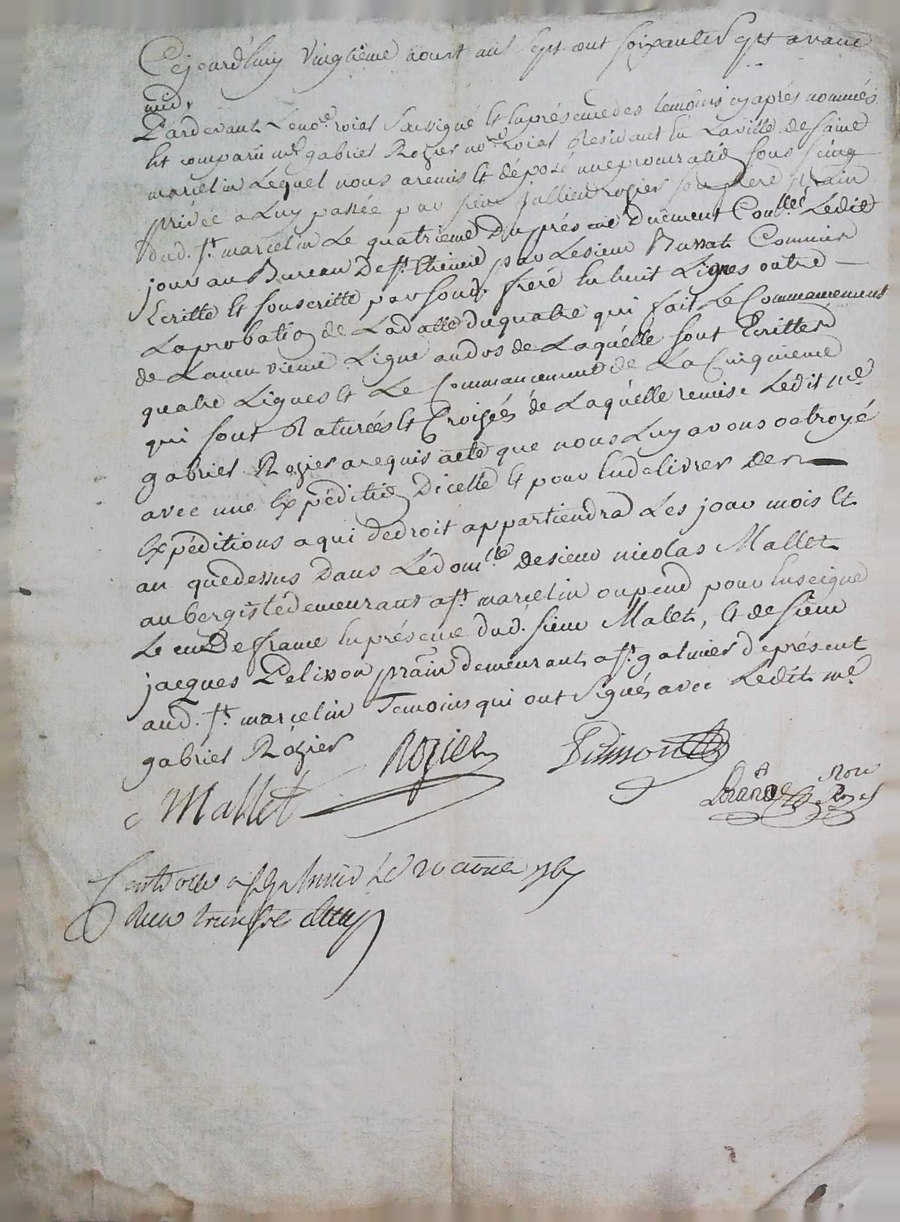 Cejourd'huy vingtième aoust mil sept cent soixante sept avant
midi,
Pardevant Le no.re roial Soussigné et en présence des temoins cy après nommés
Est comparu m.e gabriel Rozier no.re roial Résident en La ville de saint
marcelin Lequel nous a remis et déposé une procuration sous seing
privée a Luy passée par sieur jullien Rozier son frère
dud. s.t marcelin Le quatrième Du présent Duement Con.llée Ledit
jour au Bureau De s.t Etienne par Le sieur Commis
Ecritte et souscritte par sond. frére En huit Lignes outre
Laprobation de La datte du quatre qui fait Le Commancement
de La neuvieme Ligne au dos de Laquélle sont Ecrittes
quatre Lignes et Le Commancement de La Cinquieme
qui sont Raturées et Croisées de Laquélle remise Ledit m.e
gabriel Rozier a requis acte que nous Luy avons octroyé
avec une Expédition Dicelle et pour En delivrer Des
Expéditions a qui de droit appartiendra Les jour mois et
an que dessus Dans Le dom.lle de sieur nicolas Mallet
aubergiste demeurant a s.t marcelin ou pend pour Enseigne
Le De france En présence dud. sieur Malet, et de sieur
jacques Pelisson demeurant a s.t galmier de présent
aud. s.t marcelin Temoins qui ont signés avec Ledit m.e
gabriel Rozier
Rozier
Mallet
Controllé a s.t galmier Le 20 aoust 1767